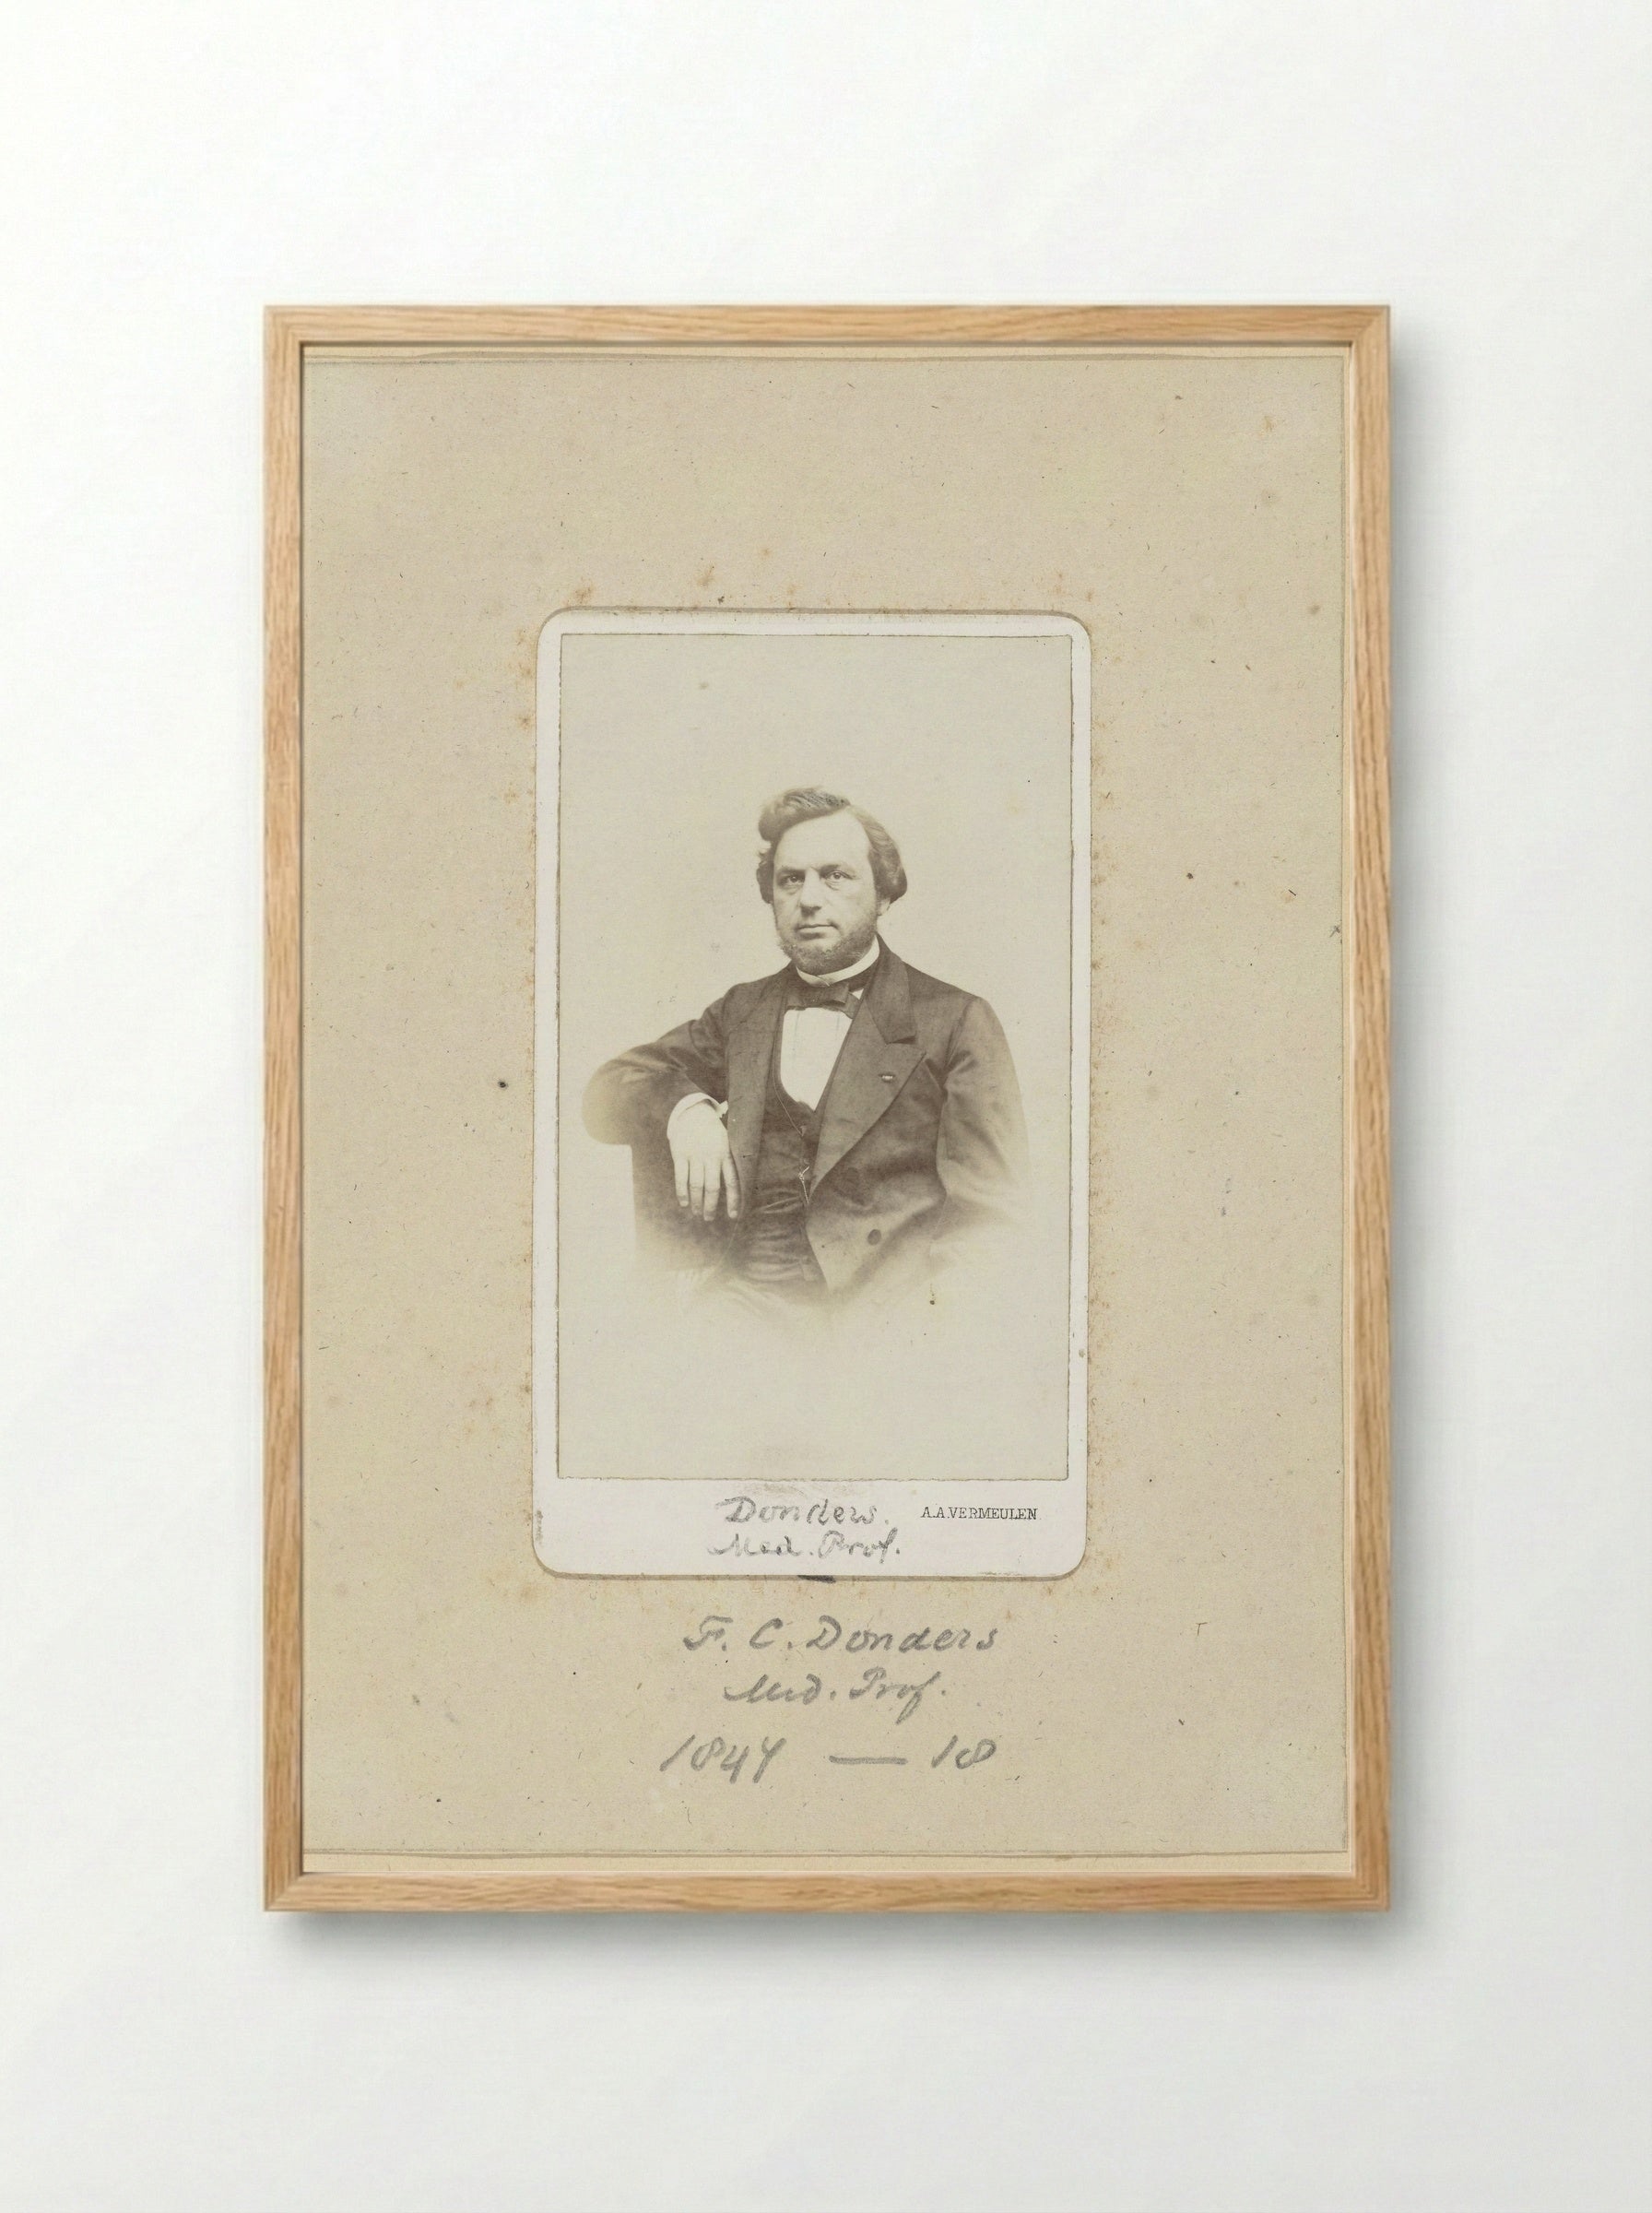 Donders. A.A.VERMEULEN
Med. Prof.
F. C. Donders
Med. Prof.
1847 — 18